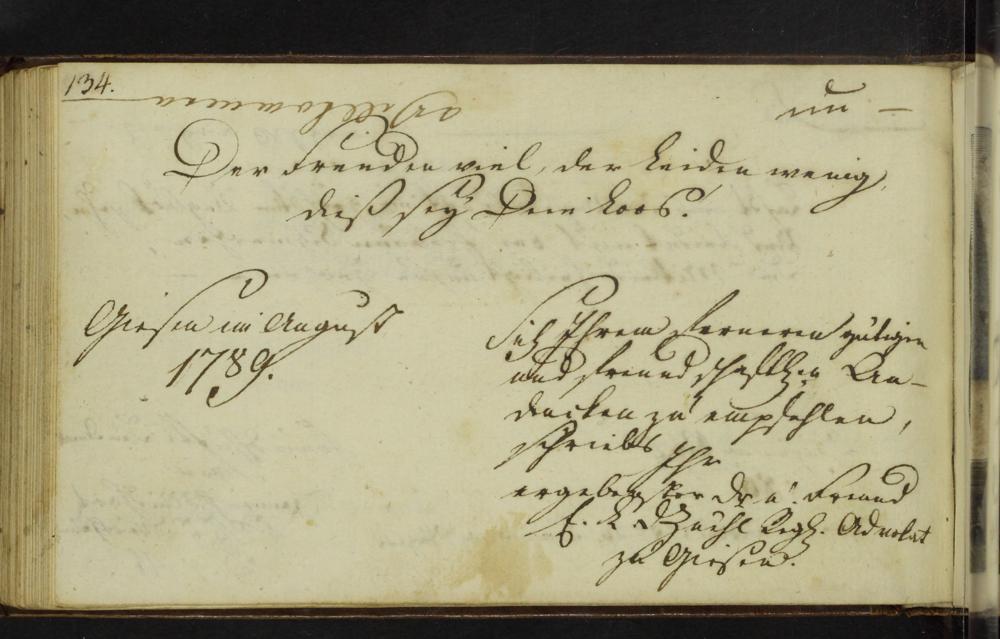 134.
un –
Der Freuden viel, der Leiden wenig,
dieß sey Dein Loos.
Giesen im August
1789.
Sich Ihrem ferneren gütigen
und freundschaftlichen An-
dencken zu empfehlen,
schriebs Ihr
ergebenster Dr u. Freund
Advokat
zu Giesen.